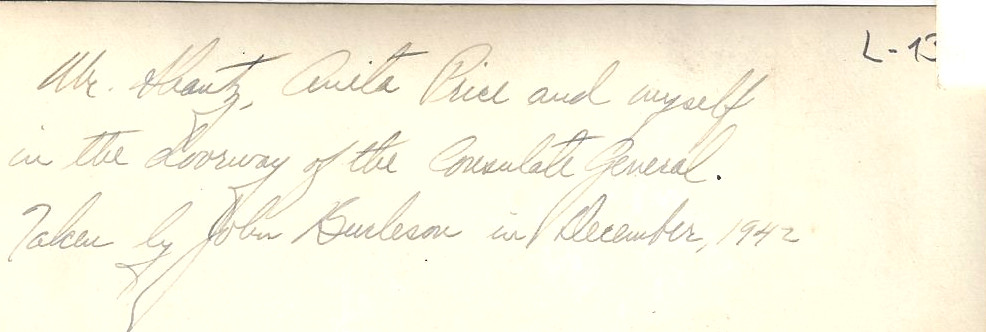 L-13
Mr. Shantz, Anita Price and myself
in the doorway of the Consulate General.
Taken by John Burleson in December, 1942